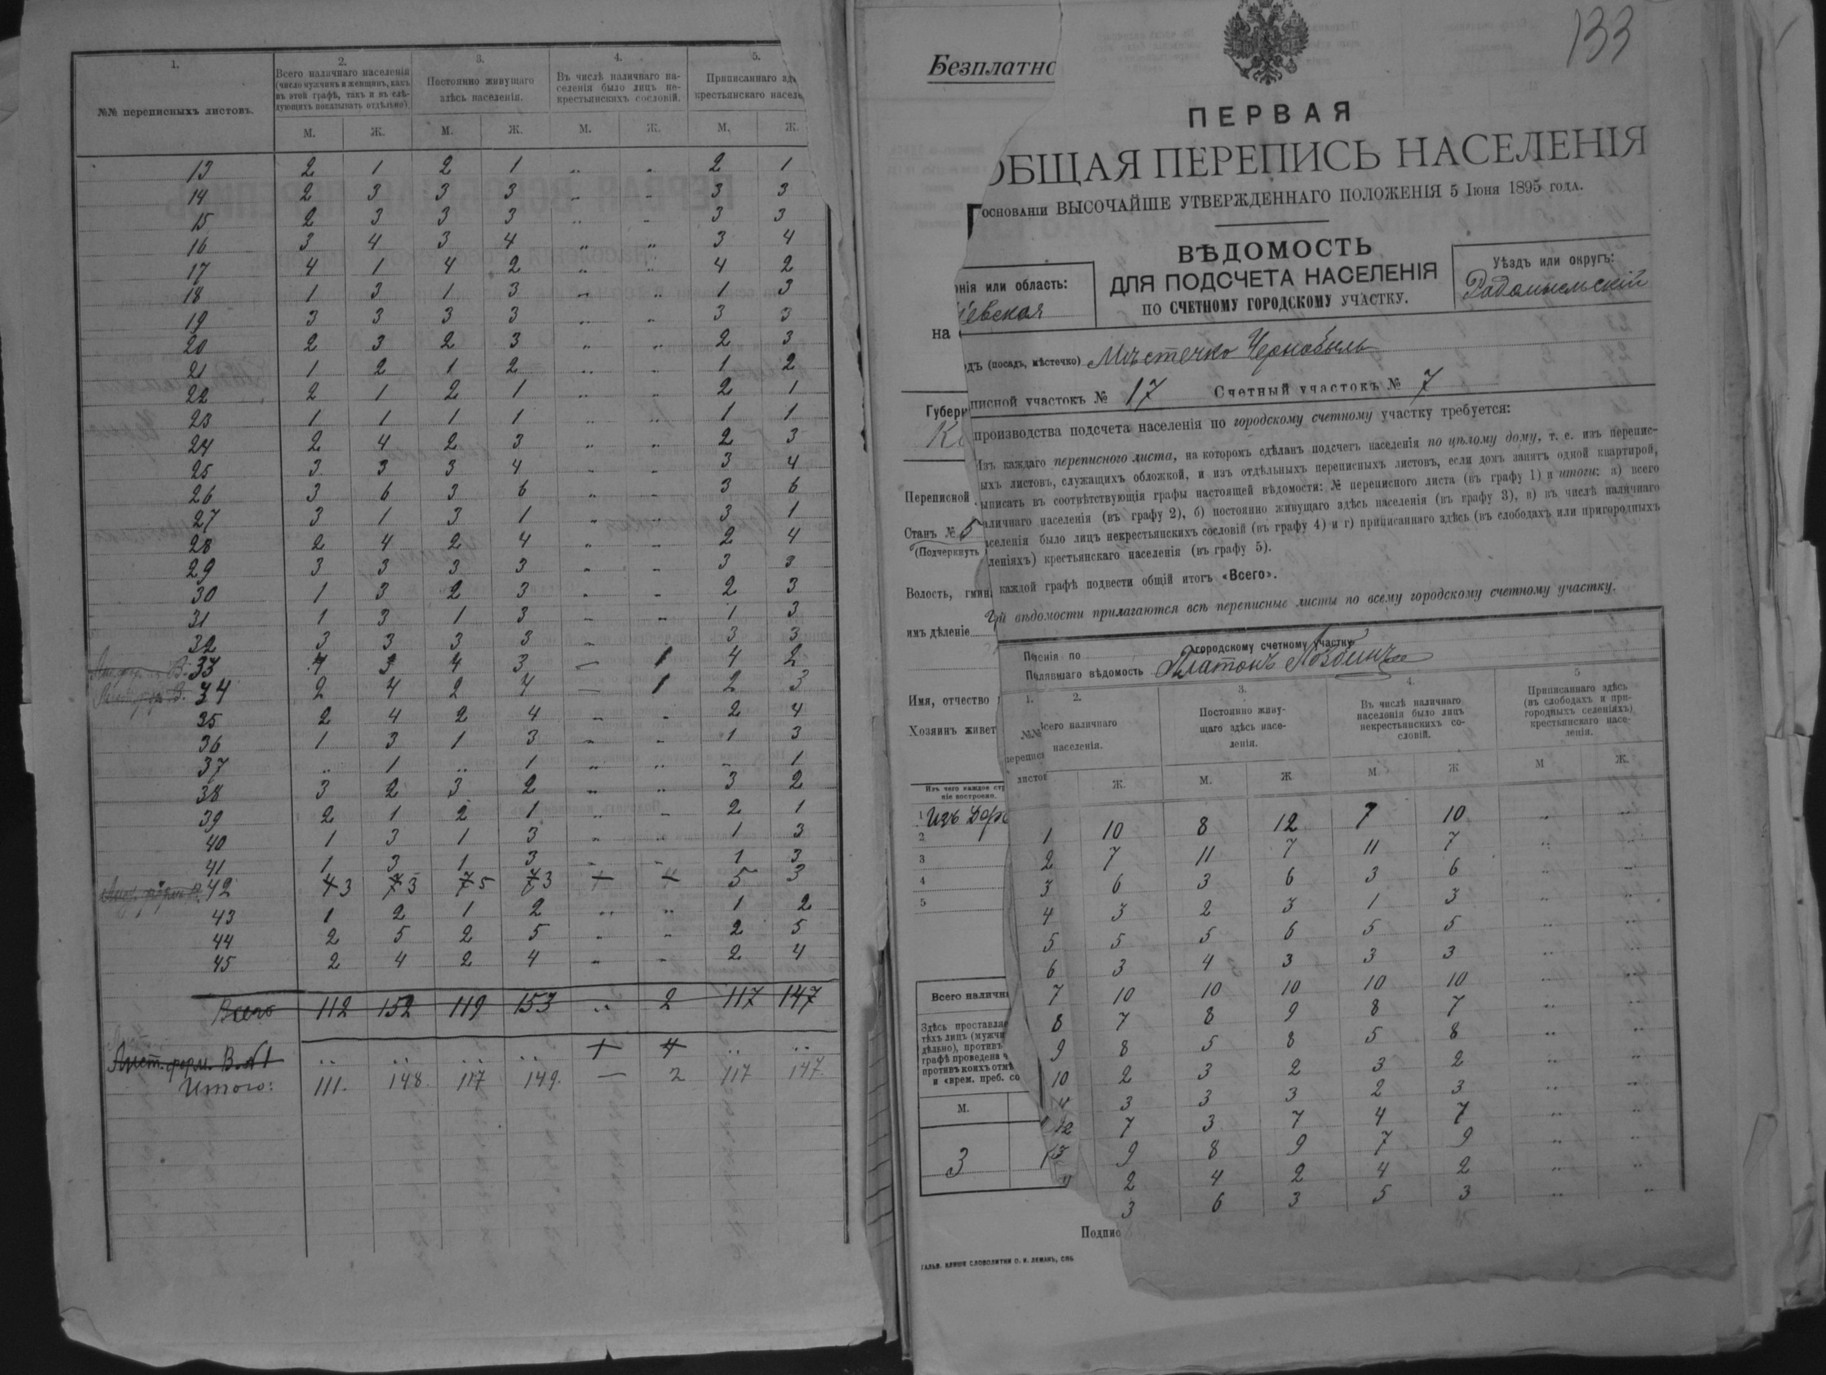 1. 2. 3. 4. 5.
№№ переписныхъ листовъ.
Всего наличнаго населенія (число мужчинъ и женщинъ, какъ въ этой графѣ, такъ и въ слѣдующихъ показывать отдѣльно).
Постоянно живущаго здѣсь населенія.
Въ числѣ наличнаго населенія было лицъ некрестьянскихъ сословій.
Приписаннаго
крестьянскаго
М. Ж. М. Ж. М. Ж. М. Ж.
13 2 1 2 1 .. .. 2 1
14 2 3 3 3 .. .. 3 3
15 2 3 3 3 .. .. 3 3
16 3 4 3 4 .. .. 3 4
17 4 1 4 2 .. .. 4 2
18 1 3 1 3 .. .. 1 3
19 3 3 3 3 .. .. 3 3
20 2 3 2 3 .. .. 2 3
21 1 2 1 2 .. .. 1 2
22 2 1 2 1 .. .. 2 1
23 1 1 1 1 .. .. 1 1
24 2 4 2 3 .. .. 2 3
25 3 3 3 4 .. .. 3 4
26 3 6 3 6 .. .. 3 6
27 3 1 3 1 .. .. 3 1
28 2 4 2 4 .. .. 2 4
29 3 3 3 3 .. .. 3 3
30 1 3 2 3 .. .. 2 3
31 1 3 1 3 .. .. 1 3
32 3 3 3 3 .. 3 3
33 4 3 4 3 — 1 4 2
34 2 4 2 4 — 1 2 3
35 2 4 2 4 .. .. 2 4
36 1 3 1 3 .. .. 1 3
37 .. 1 .. 1 .. .. .. 1
38 3 2 3 2 .. .. 3 2
39 2 1 2 1 .. .. 2 1
40 1 3 1 3 .. .. 1 3
41 1 3 1 3 .. .. 1 3
42 3 3 5 3 5 3
43 1 2 1 2 .. .. 1 2
44 2 5 2 5 .. .. 2 5
45 2 4 2 4 .. .. 2 4
Всего 112 152 119 153 .. 2 117 147
Лист. форм. В. №1 .. .. .. .. 1 4 .. ..
Итого: 111. 148. 117 149. — 2 117 147.
133
Безплатно
ПЕРВАЯ
ОБЩАЯ ПЕРЕПИСЬ НАСЕЛЕНІЯ
основаніи ВЫСОЧАЙШЕ УТВЕРЖДЕННАГО ПОЛОЖЕНІЯ 5 Іюня 1895 года.
ВѢДОМОСТЬ
ДЛЯ ПОДСЧЕТА НАСЕЛЕНІЯ
ПО СЧЕТНОМУ ГОРОДСКОМУ УЧАСТКУ.
нія или область:
іевская
Уѣздъ или округъ:
Радомысльскій
на
одъ (посадъ, мѣстечко) Мѣстечко Чернобыль
писной участокъ № 17 Счетный участокъ № 7
Губерн
производства подсчета населенія по городскому счетному участку требуется:
Изъ каждаго переписного листа, на которомъ сдѣланъ подсчетъ населенія по цѣлому дому, т. е. изъ перепис-
ыхъ листовъ, служащихъ обложкой, и изъ отдѣльныхъ переписныхъ листовъ, если домъ занятъ одной квартирой,
ыписать въ соотвѣтствующія графы настоящей вѣдомости: № переписного листа (въ графу 1) и итоги: а) всего
аличнаго населенія (въ графу 2), б) постоянно живущаго здѣсь населенія (въ графу 3), в) въ числѣ наличнаго
аселенія было лицъ некрестьянскихъ сословій (въ графу 4) и г) приписаннаго здѣсь (въ слободахъ или пригородныхъ
леніяхъ) крестьянскаго населенія (въ графу 5).
каждой графѣ подвести общій итогъ «Всего».
вѣдомости прилагаются всѣ переписные листы по всему городскому счетному участку.
Переписной
Станъ № 5
(Подчеркнуть
Волость, гмин
имъ дѣленіе
Имя, отчество
Хозяинъ живет
городскому счетному участку
вѣдомость Платонъ
1. 2. 3. 4. 5
сего наличнаго населенія.
Постоянно живущаго здѣсь населенія.
Въ числѣ наличнаго населенія было лицъ некрестьянскихъ сословій.
Приписаннаго здѣсь (въ слободахъ и пригородныхъ селеніяхъ) крестьянскаго населенія.
Ж. М. Ж М Ж М Ж.
1 10 8 12 7 10 .. ..
2 7 11 7 11 7 .. ..
3 6 3 6 3 6 .. ..
4 3 2 3 1 3 .. ..
5 5 5 6 5 5 .. ..
6 3 4 3 3 3 .. ..
7 10 10 10 10 10 .. ..
8 7 8 9 8 7 .. ..
9 8 5 8 5 8 .. ..
10 2 3 2 3 2 .. ..
3 3 3 2 3 .. ..
12 7 3 7 4 7 .. ..
13 9 8 9 7 9 .. ..
2 4 2 4 2 .. ..
3 6 3 5 3 .. ..
Изъ чего каждое стр
ніе построено.
1
2
3
4
5
Всего наличн
Здѣсь проставля
тѣхъ лицъ (мужч
дѣльно), противъ
графѣ проведена ч
противъ коихъ отмѣ
и «врем. преб. со
М.
3
Подпис